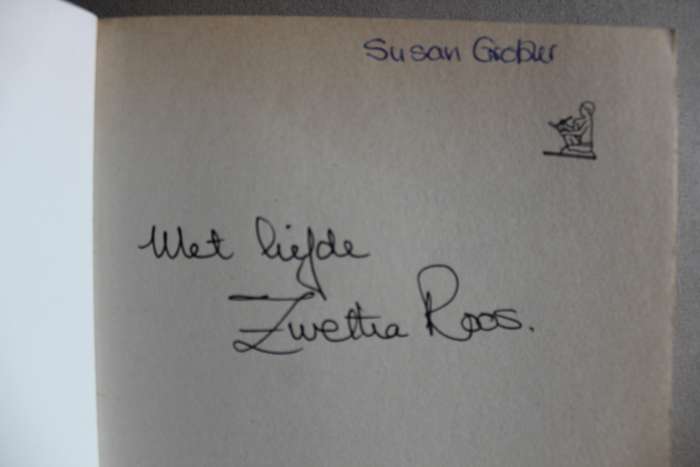 Susan Grobler
Met liefde
Zwettra Roos.